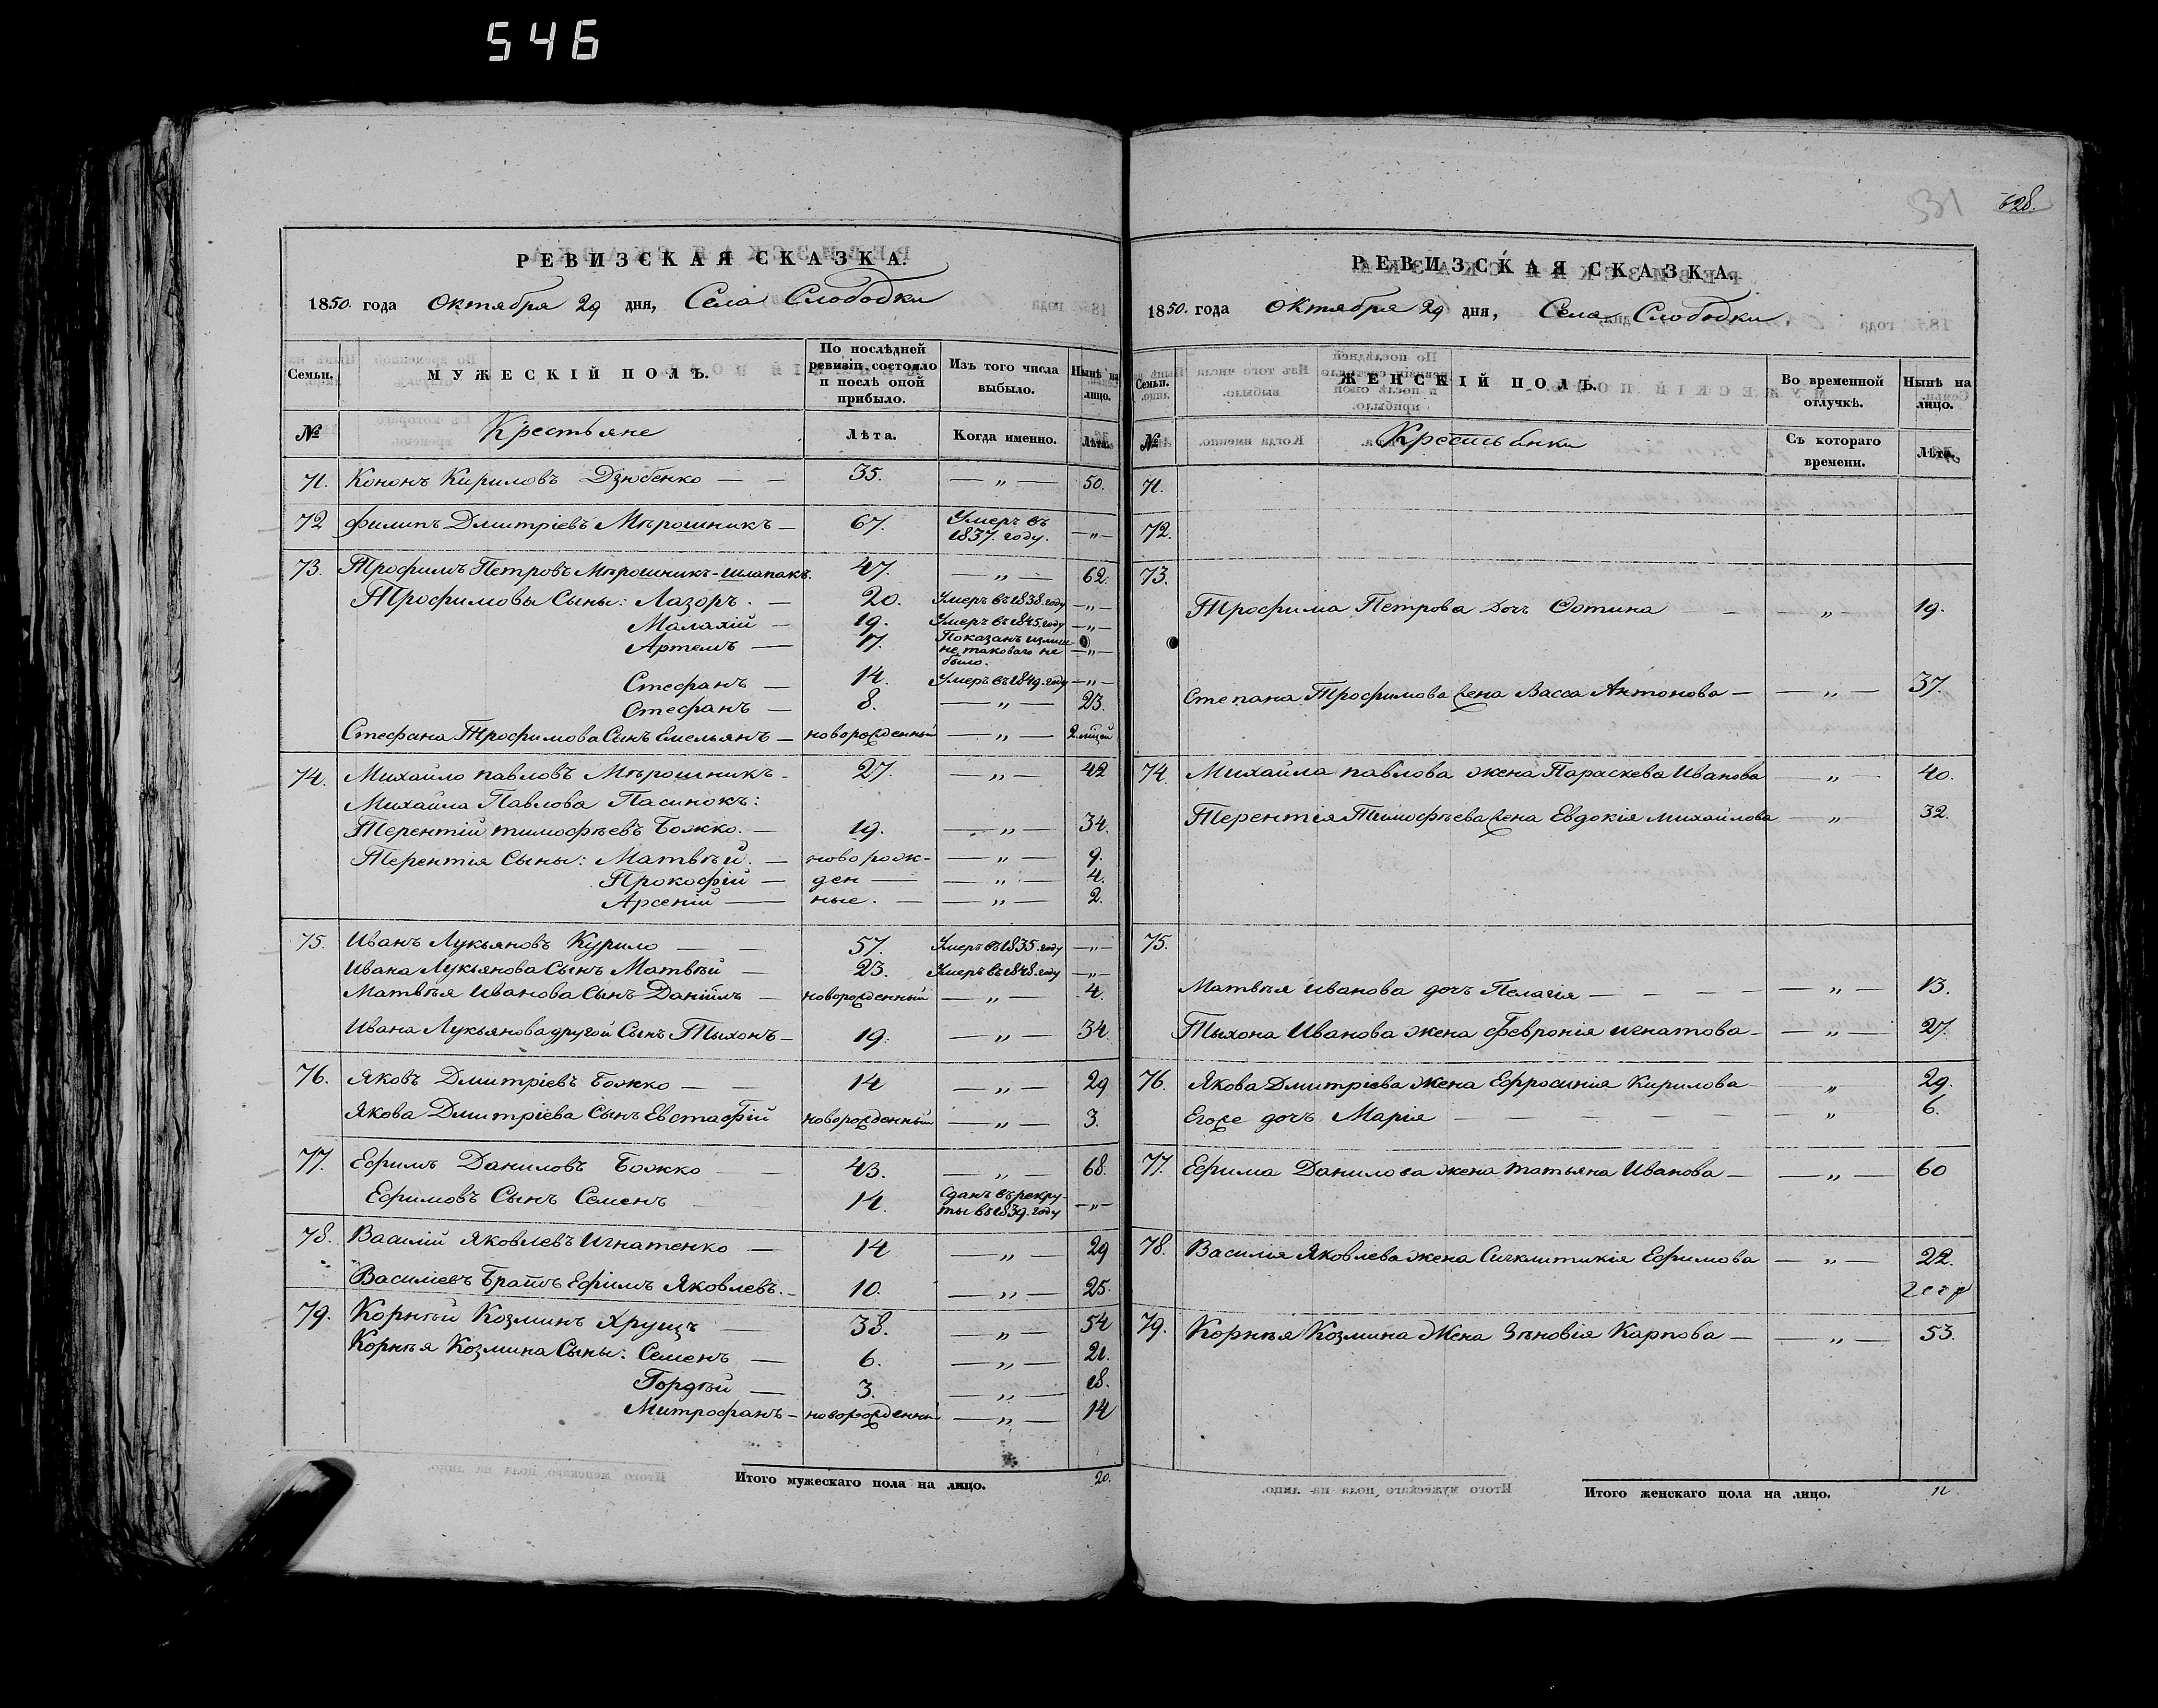 546
РЕВИЗСКАЯ СКАЗКА.
1850. года Октября 29 дня, Села Слободки
Семьи. МУЖЕСКІЙ ПОЛЪ. По послѣдней ревизіи состояло и послѣ оной прибыло. Изъ того числа выбыло. Нынѣ на лицо.
№ Крестьяне Лѣта. Когда именно. Лѣта.
71. Кононъ Кириловъ Дзюбенко — — 35. — „ — 50.
72 Филипъ Дмитріевъ Мѣрошникъ — 67. Умеръ въ 1837. году. — „ —
73. Трофимъ Петровъ Мѣрошникъ-шлапакъ. 47. — „ — 62.
Трофимовы Сыны: Лазоръ. — 20. Умеръ въ 1838. году — „ —
Малахій — 19. Умеръ въ 1845. году — „ —
Артемъ — 17. Показанъ излишне таковаго не было. — „ —
Стефанъ — 14. Умеръ въ 1849. году — „ —
Стефанъ — 8. — „ — 23.
Стефана Трофимова Сынъ Емельянъ — новорожденный — „ — 2.
74. Михайло павловъ Мѣрошникъ - 27. — „ — 42
Михайла Павлова Пасинокъ:
Терентій тимофѣевъ Божко. — 19. — „ — 34.
Терентія Сыны: Матвѣй. — новорож- — „ — 9.
Прокофій — ден — — „ — 4.
Арсеній — ные. — — „ — 2.
75. Иванъ Лукьяновъ Курило — — 57. Умеръ въ 1835. году — „ —
Ивана Лукьянова Сынъ Матвѣй — 23. Умеръ въ 1848. году — „ —
Матвѣя Иванова Сынъ Даніилъ — новорожденный — „ — 4.
Ивана Лукьянова другой Сынъ Тыхонъ — 19. — „ — 34.
76. Яковъ Дмитріевъ Божко — — 14 — „ — 29
Якова Дмитріева Сынъ Евстафій новорожденный — „ — 3.
77. Ефимъ Даниловъ Божко — — 43. — „ — 68.
Ефимовъ Сынъ Семенъ 14. Сданъ въ рекруты въ 1839. году — „ —
78. Василій Яковлевъ Игнатенко — 14 — „ — 29
Василіевъ Братъ Ефимъ Яковлевъ. — 10. — „ — 25.
79. Корнѣй Козминъ Хрущъ — 38. — „ — 54
Корнѣя Козмина Сыны: Семенъ — 6. — „ — 21.
Гордѣй — 3. — „ — 18.
Митрофанъ — новорожденный — „ — 14
Итого мужескаго пола на лицо. 20.
531 628.
РЕВИЗСКАЯ СКАЗКА.
1850. года Октября 29 дня, Села Слободки
Семьи. ЖЕНСКІЙ ПОЛЪ. Во временной отлучкѣ. Нынѣ на лицо.
№ Крестьянки Съ котораго времени. Лѣта.
71.
72.
73.
Трофима Петрова дочь Фотина — — — „ — 19.
Степана Трофимова жена Васса Антонова — — „ — 37.
74. Михайла павлова жена Параскева Иванова — „ — 40.
Терентія Тимофѣева жена Евдокія михайлова — „ — 32.
75.
Матвѣя Иванова дочь Пелагія — — — — — „ — 13.
Тыхона Иванова жена Февронія игнатова — — „ — 27.
76. Якова Дмитріева жена Ефросинія Кирилова „ 29.
Егоже дочь Марія — — — — — — „ 6.
77. Ефима Данилова жена татьяна Иванова — — „ — 60
78. Василія Яковлева жена Сигклитикія Ефимова — „ — 22.
79. Корнѣя Козмина Жена Зѣновія Карпова — — „ — 53.
Итого женскаго пола на лицо. 11.